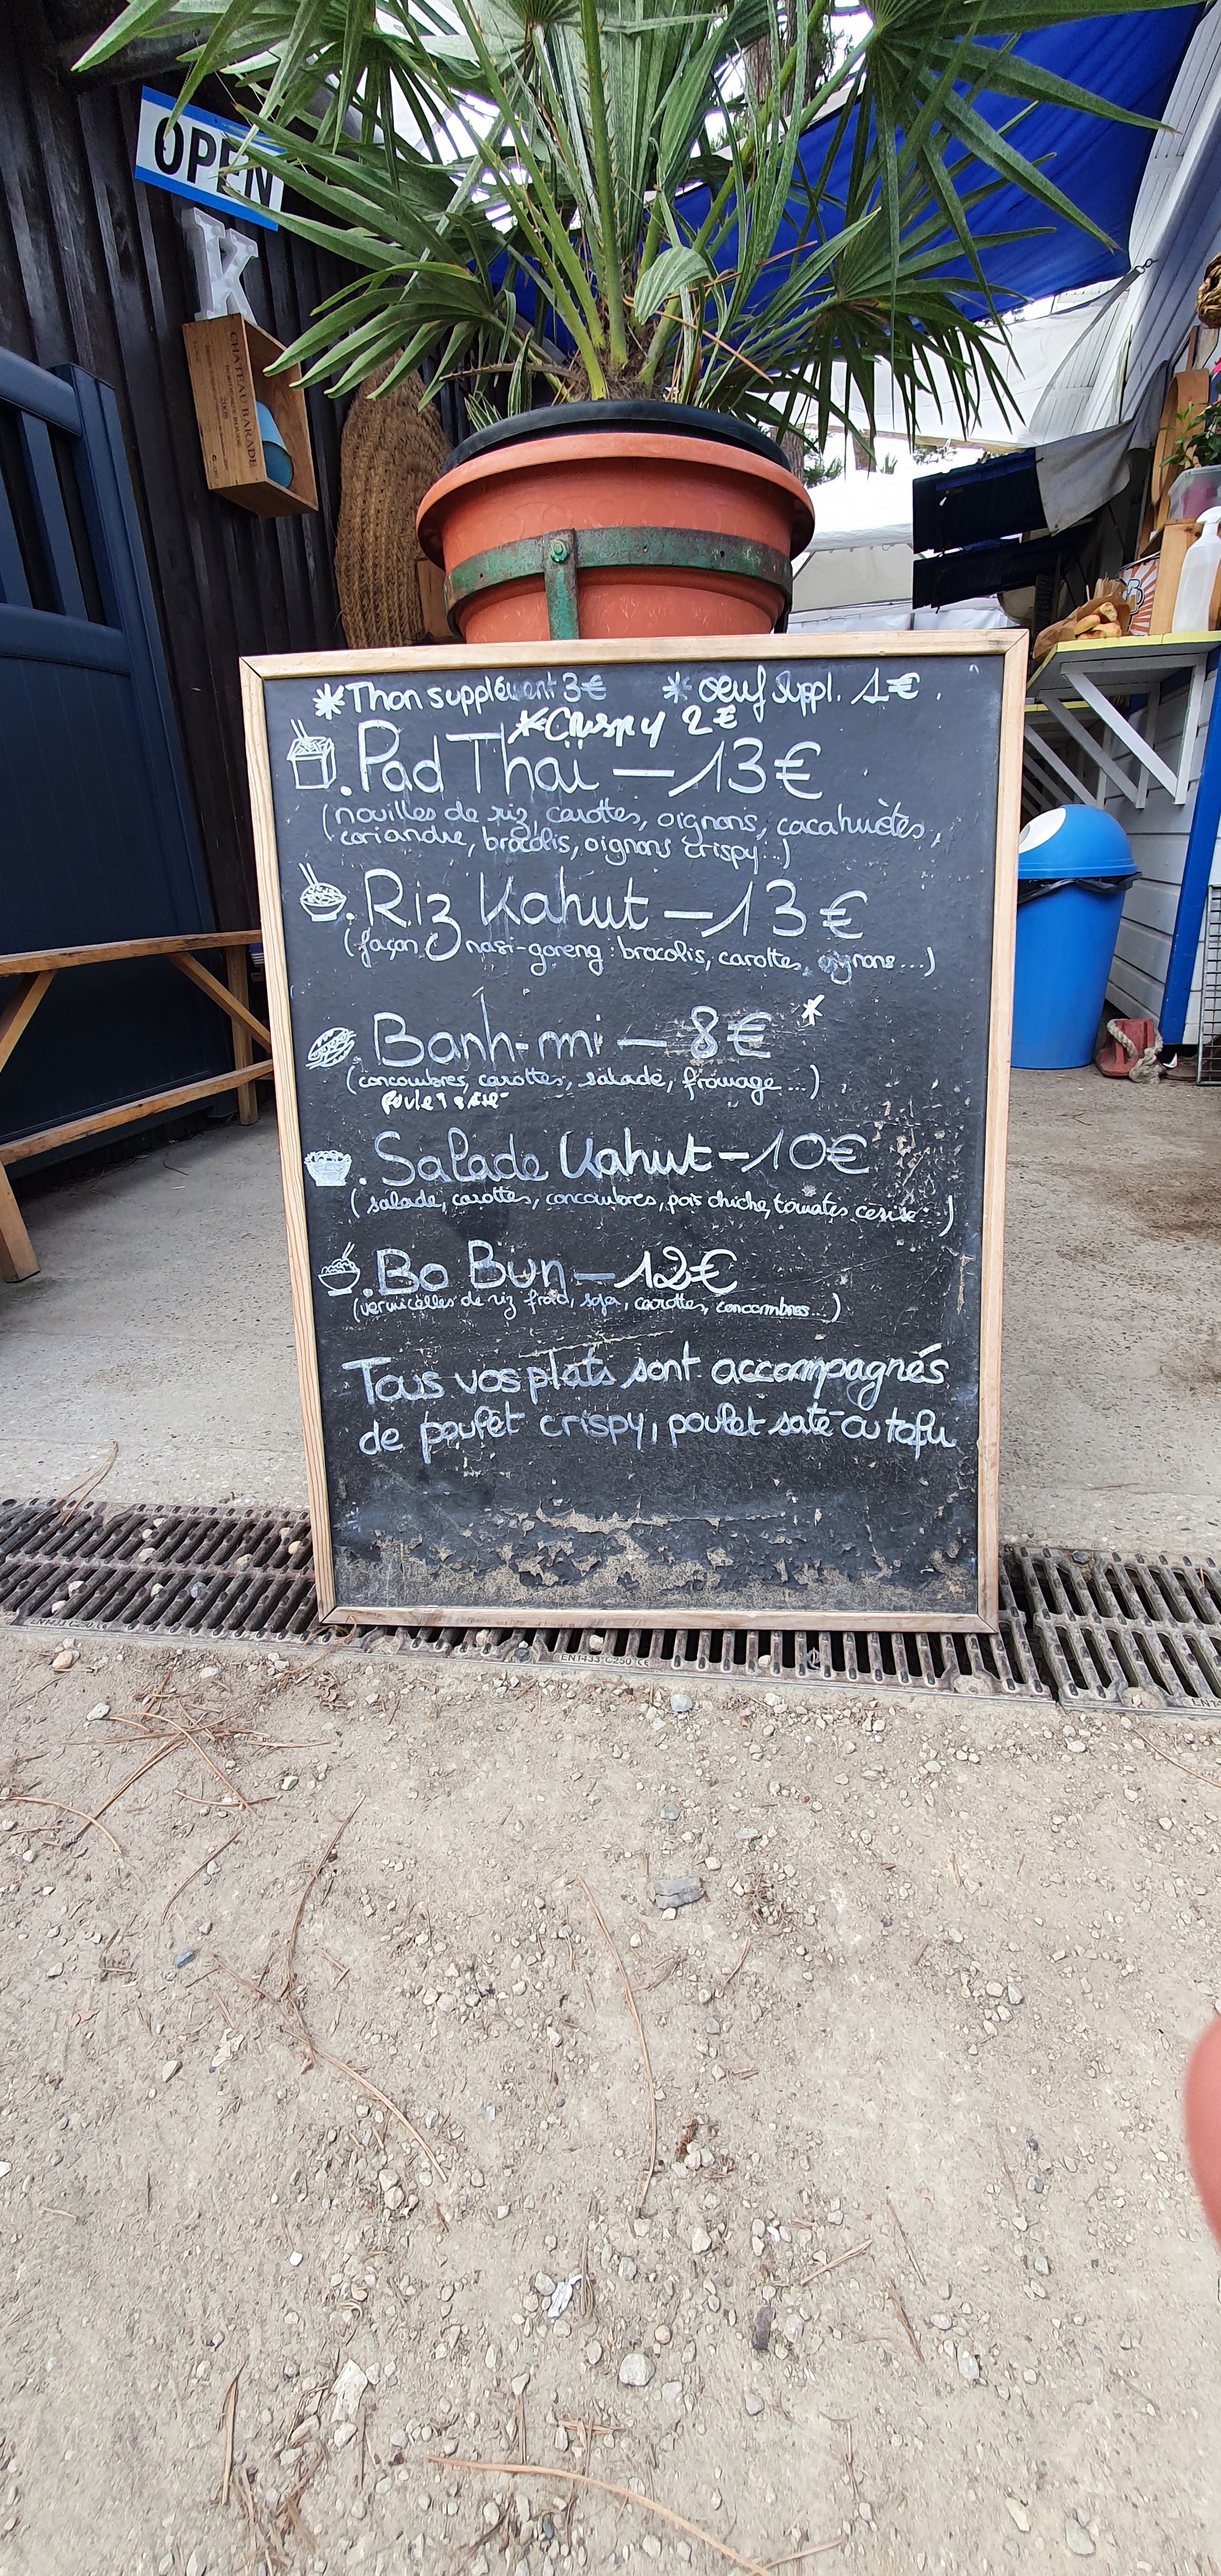 OPEN
K
CHATEAU BARADE
2005
*Thon supplément 3€ * oeuf suppl. 1€.
*Crispy 2€
.Pad Thaï — 13€
(nouilles de riz, carottes, oignons, cacahuètes,
coriandre, brocolis, oignons crispy...)
.Riz Kahut — 13€
(façon nasi-goreng : brocolis, carottes, oignons...)
.Banh-mi — 8€*
(concombres, carottes, salade, fromage...)
poulet saté
.Salade Kahut — 10€
(salade, carottes, concombres, pois chiche, tomates cerise...)
.Bo Bun — 12€
(vermicelles de riz froid, soja, carottes, concombres...)
Tous vos plats sont accompagnés
de poulet crispy, poulet saté ou tofu
EN1433 C250 CE
EN1433 C250 CE